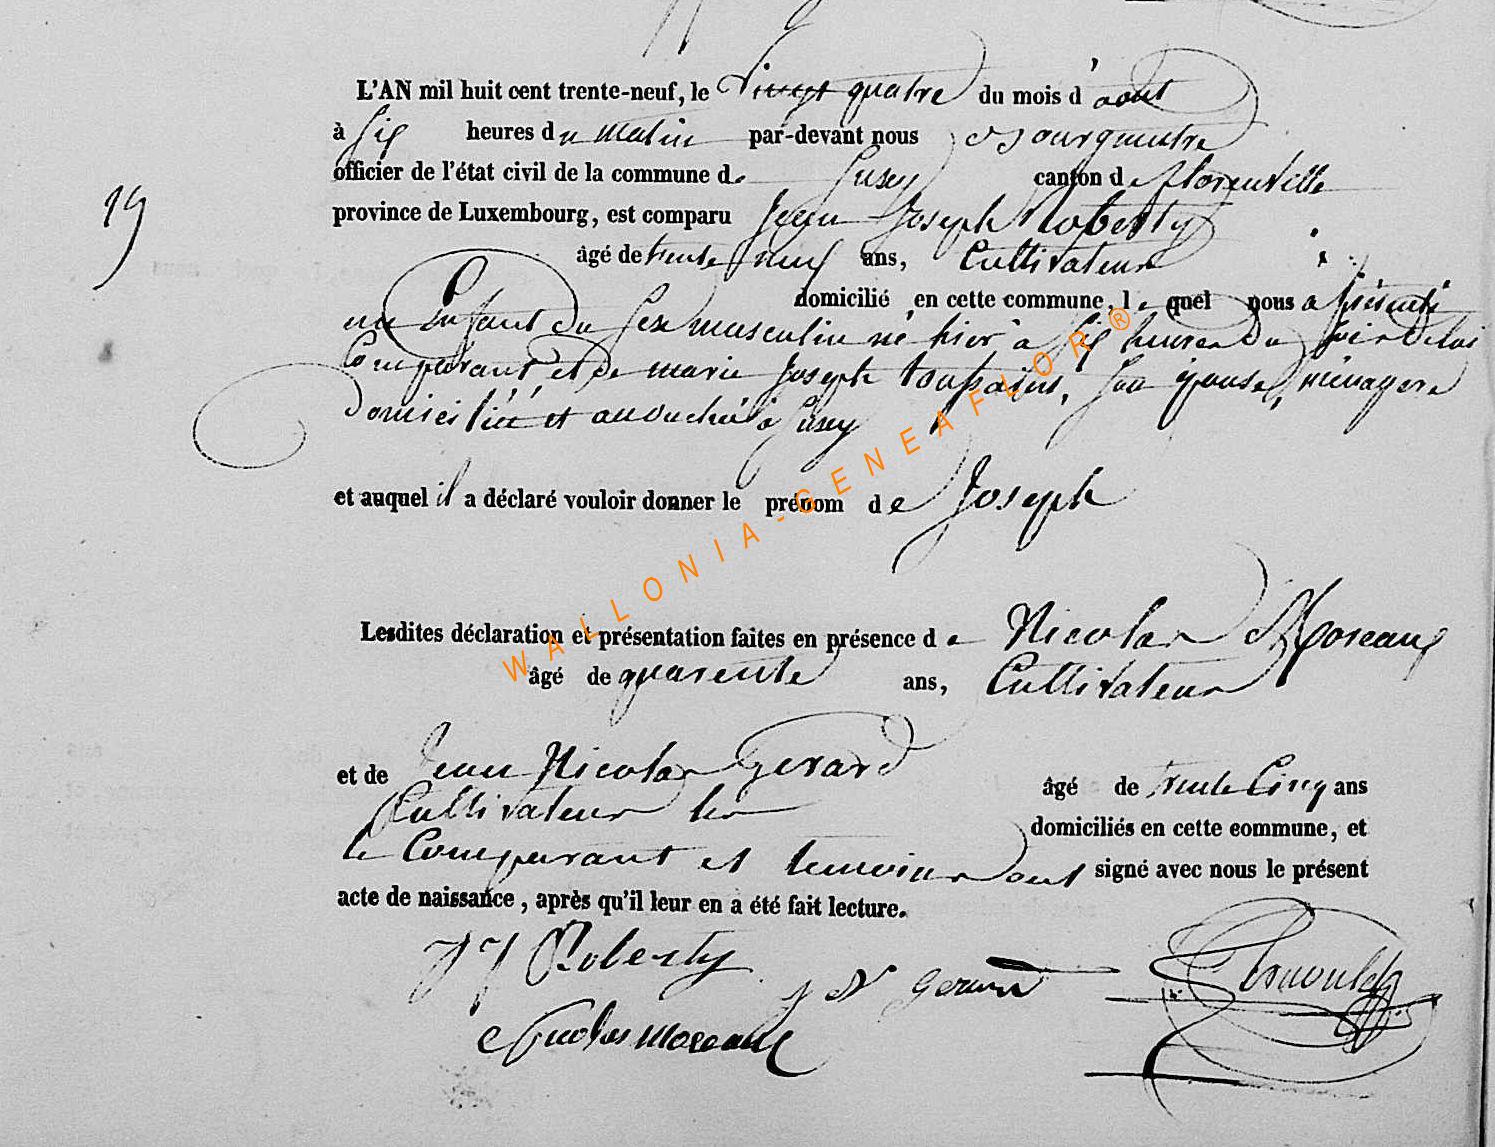 L'AN mil huit cent trente-neuf, le vingt quatre du mois d'aout
19
à six heures du matin par-devant nous
officier de l'état civil de la commune de canton de florenville
province de Luxembourg, est comparu Jean Joseph Roberty
âgé de trente neuf ans, Cultivateur
domicilié en cette commune, lequel nous a présenté
un Enfant du sexe masculin né hier à six heures du soir de lui
Comparant, et de marie Joseph toussaint, son épouse, ménagere
domiciliée et accouchée à
et auquel il a déclaré vouloir donner le prénom de Joseph
WALLONIA-GENEAFLOR®
Lesdites déclaration et présentation faites en présence de Nicolas Moreaux
âgé de quarente ans, Cultivateur
et de Jean Nicolas Gerard
âgé de trente Cinq ans
Cultivateur les
domiciliés en cette commune, et
le Comparant et temoins ont signé avec nous le présent
acte de naissance, après qu'il leur en a été fait lecture.
J J Roberty
J N Gerard
Nicolas Moreaux